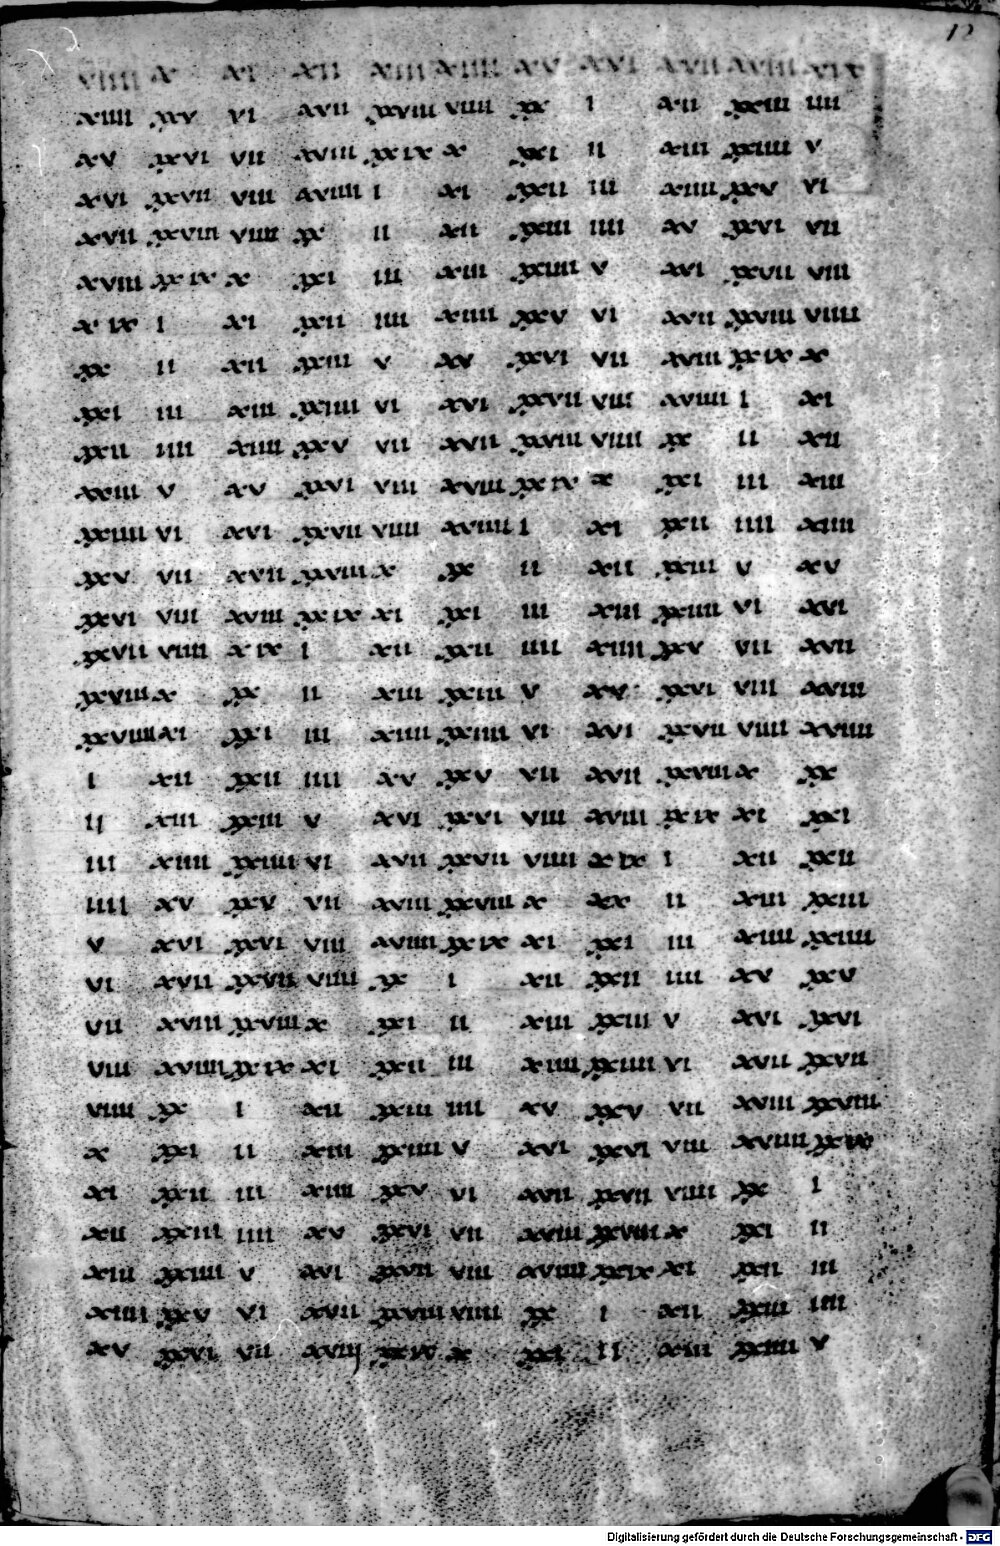 12
viiii x xi xii xiii xiiii xv xvi xvii xviii xix
xiiii xxv vi xvii xxviii viiii xx i xii xxiii iiii
xv xxvi vii xviii xxix x xxi ii xiii xxiiii v
xvi xxvii viii xviiii i xi xxii iii xiiii xxv vi
xvii xxviii viiii xx ii xii xxiii iiii xv xxvi vii
xviii xxix x xxi iii xiii xxiiii v xvi xxvii viii
xix i xi xxii iiii xiiii xxv vi xvii xxviii viiii
xx ii xii xxiii v xv xxvi vii xviii xxix x
xxi iii xiii xxiiii vi xvi xxvii viii xviiii i xi
xxii iiii xiiii xxv vii xvii xxviii viiii xx ii xii
xxiii v xv xxvi viii xviii xxix x xxi iii xiii
xxiiii vi xvi xxvii viiii xviiii i xi xxii iiii xiiii
xxv vii xvii xxviii x xx ii xii xxiii v xv
xxvi viii xviii xxix xi xxi iii xiii xxiiii vi xvi
xxvii viiii xix i xii xxii iiii xiiii xxv vii xvii
xxviii x xx ii xiii xxiii v xv xxvi viii xviii
xxviiii xi xxi iii xiiii xxiiii vi xvi xxvii viiii xviiii
i xii xxii iiii xv xxv vii xvii xxviii x xx
ii xiii xxiii v xvi xxvi viii xviii xxix xi xxi
iii xiiii xxiiii vi xvii xxvii viiii xix i xii xxii
iiii xv xxv vii xviii xxviii x xx ii xiii xxiii
v xvi xxvi viii xviiii xxix xi xxi iii xiiii xxiiii
vi xvii xxvii viiii xx i xii xxii iiii xv xxv
vii xviii xxviii x xxi ii xiii xxiii v xvi xxvi
viii xviiii xxix xi xxii iii xiiii xxiiii vi xvii xxvii
viiii xx i xii xxiii iiii xv xxv vii xviii xxviii
x xxi ii xiii xxiiii v xvi xxvi viii xviiii xxix
xi xxii iii xiiii xxv vi xvii xxvii viiii xx i
xii xxiii iiii xv xxvi vii xviii xxviii x xxi ii
xiii xxiiii v xvi xxvii viii xviiii xxix xi xxii iii
xiiii xxv vi xvii xxviii viiii xx i xii xxiii iiii
xv xxvi vii xviij xxix x xxi ii xiii xxiiii v
Digitalisierung gefördert durch die Deutsche Forschungsgemeinschaft - DFG